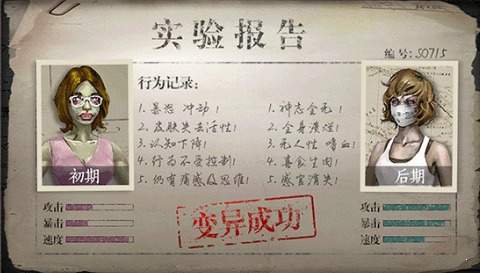 实验报告
编号: S0715
行为记录:
1. 暴怒 冲动!
2. 皮肤失去活性!
3. 认知下降!
4. 行为不受控制!
5. 仍有痛感及思维!
1. 神志全无!
2. 全身溃烂!
3. 无人性 嗜血!
4. 喜食生肉!
5. 感官消失!
初期
后期
攻击
暴击
速度
变异成功
攻击
暴击
速度